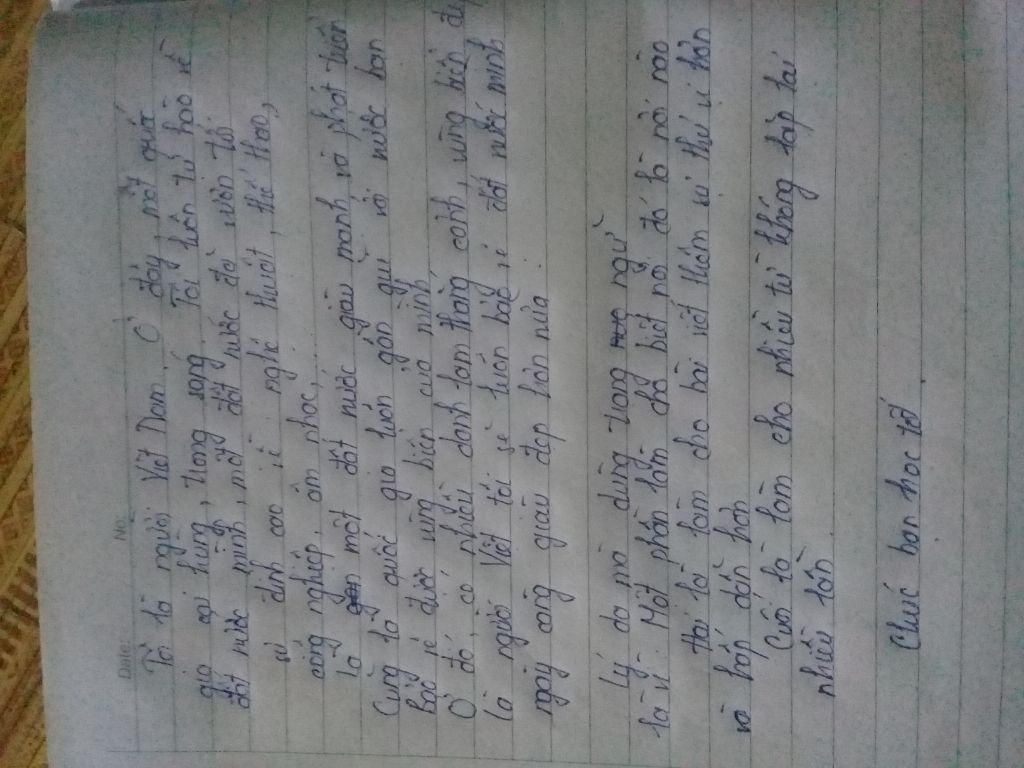 Date: No:
Tôi là người Việt Nam. Ở đây, một quốc
gia oai hùng, trang sang. Tôi luôn tự hào về
đất nước mình, một đất nước đã vươn tới
sự đỉnh cao về nghệ thuật, thể thao,
công nghiệp, ân nhạc,
là một đất nước giàu mạnh và phát triển
Cũng là quốc gia luôn gần gũi với nước bạn
Bảo vệ được vùng biển của mình
Ở đó, có nhiều danh lam thắng cảnh, vùng biển đẹp
Là người Việt tôi sẽ luôn bảo vệ đất nước mình
ngày càng giàu đẹp hơn nữa.
Lý do mà dùng trạng ngữ
là vì: Một phần làm cho biết nơi đó là nơi nào
Hai là làm cho bài viết thêm sự thú vị hơn
và hấp dẫn hơn
Cuối là làm cho nhiều từ không lặp lại
nhiều lần
Chúc bạn học tố